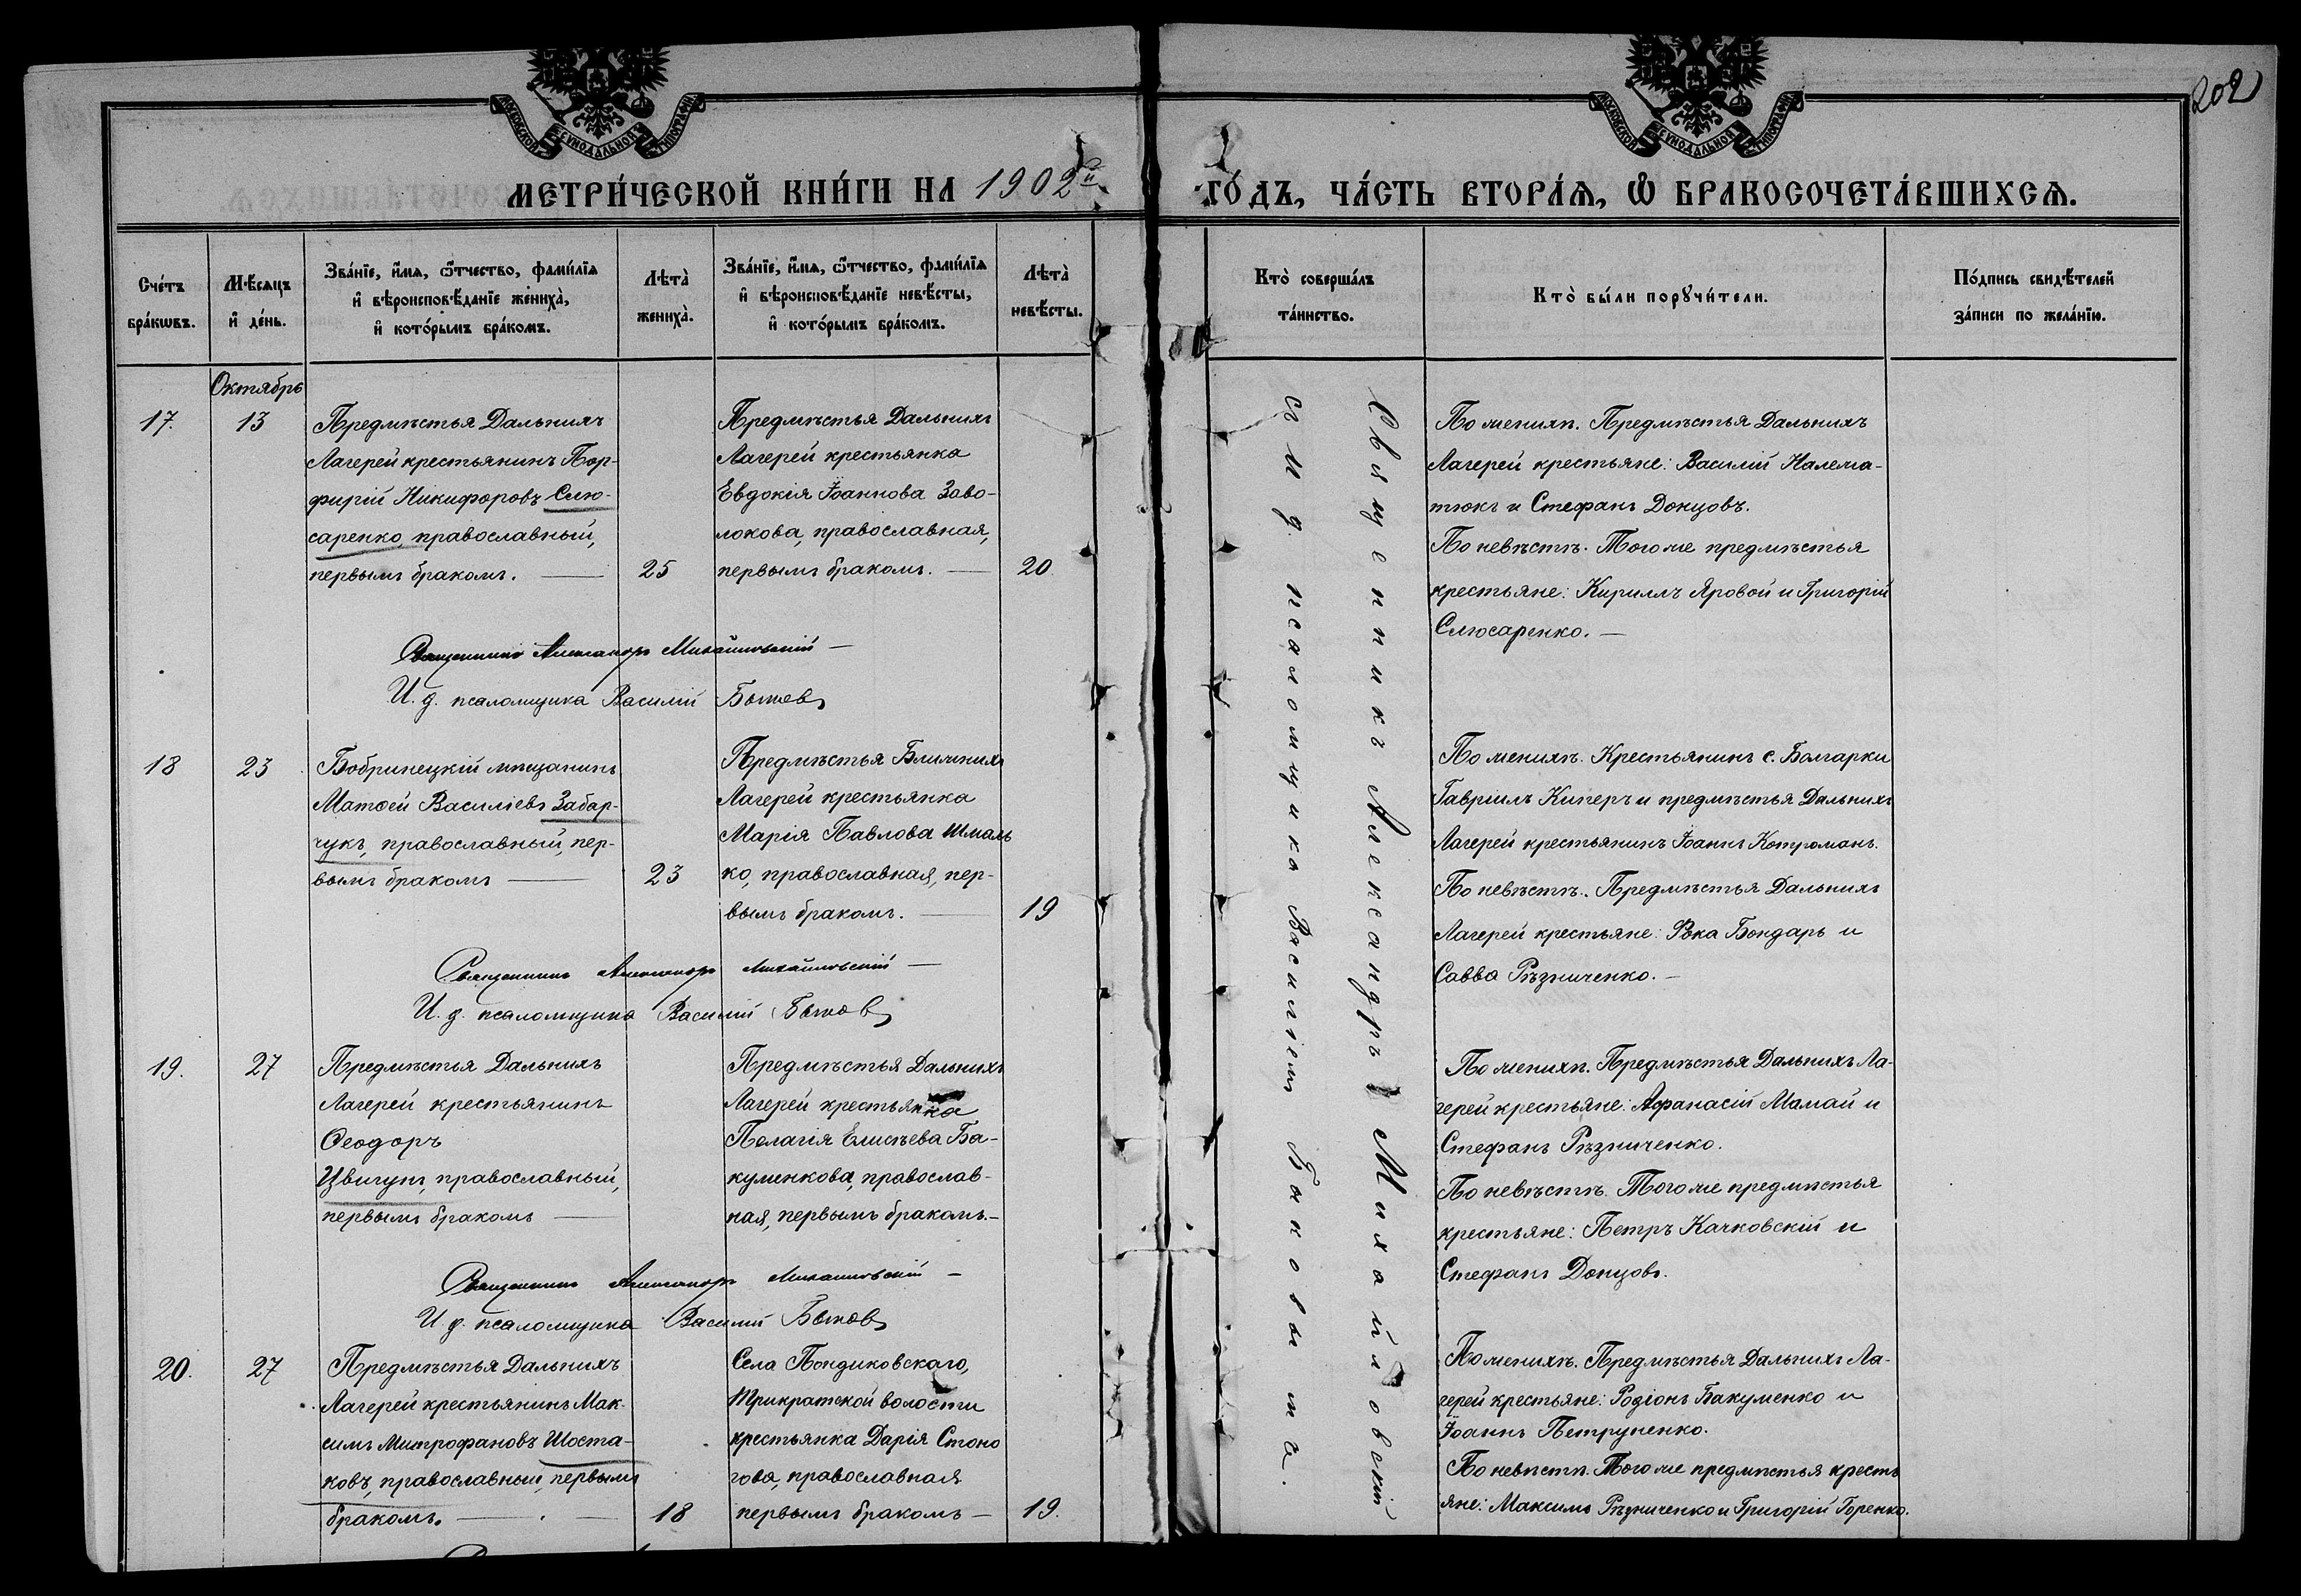 202
МОСКОВСКОЙ СѴНОДАЛЬНОЙ ТИПОГРАФІИ
МОСКОВСКОЙ СѴНОДАЛЬНОЙ ТИПОГРАФІИ
МЕТРИ́ЧЕСКОЙ КНИ́ГИ НА 1902й
ГО́ДЪ, ЧА́СТЬ ВТОРА́Я, Ѡ БРАКОСОЧЕТА́ВШИХСЯ.
Сче́тъ бра́кѡвъ.
Мѣ́сяцъ и҆ де́нь.
Зва́нїе, и҆́мя, ѻ҆́тчество, фами́лїя
и҆ вѣроисповѣ́данїе жениха̀,
и҆ кото́рымъ бра́комъ.
Лѣта̀ жениха̀.
Зва́нїе, и҆́мя, ѻ҆́тчество, фами́лїя
и҆ вѣроисповѣ́данїе невѣ́сты,
и҆ кото́рымъ бра́комъ.
Лѣта̀ невѣ́сты.
Кто̀ соверша́лъ
та́инство.
Кто̀ бы́ли порꙋчи́тели.
По́дпись свидѣ́телей
за́писи по жела́нїю.
Октябрь
17.
13
Предмѣстья Дальнихъ
Лагерей крестьянинъ Пор-
фирій Никифоровъ Слю-
саренко, православный,
первымъ бракомъ. —
25
Предмѣстья Дальнихъ
Лагерей крестьянка
Евдокія Іоаннова Заво-
локова, православная,
первымъ бракомъ. —
20
По женихѣ. Предмѣстья Дальнихъ
Лагерей крестьяне: Василій Належа-
тюкъ и Стефанъ Донцовъ.
По невѣстѣ. Того же предмѣстья
крестьяне: Кириллъ Яровой и Григорій
Слюсаренко. —
Священникъ Александръ Михайловскій —
И. д. псаломщика Василій
18
23
Бобринецкій мѣщанинъ
Матѳей Василіевъ Забар-
чукъ, православный, пер-
вымъ бракомъ —
23
Предмѣстья Ближнихъ
Лагерей крестьянка
Марія Павлова Шмаль
ко, православная, пер-
вымъ бракомъ. —
19
По женихѣ. Крестьянинъ с. Болгарки
Гавріилъ Киперъ и предмѣстья Дальнихъ
Лагерей крестьянинъ Іоаннъ Котроманъ.
По невѣстѣ. Предмѣстья Дальнихъ
Лагерей крестьяне: Ѳока Бондарь и
Савва Рѣзниченко. —
Священникъ Александръ Михайловскій —
И. д. псаломщика Василій
19.
27
Предмѣстья Дальнихъ
Лагерей крестьянинъ
Ѳеодоръ
Цвигунъ, православный,
первымъ бракомъ —
Предмѣстья Дальнихъ
Лагерей крестьянка
Пелагія Елисѣева Ба-
куменкова, православ-
ная, первымъ бракомъ. —
По женихѣ. Предмѣстья Дальнихъ Ла-
герей крестьяне: Афанасій Мамай и
Стефанъ Рѣзниченко.
По невѣстѣ. Того же предмѣстья
крестьяне: Петръ Качковскій и
Стефанъ Донцовъ.
Священникъ Александръ Михайловскій —
И д. псаломщика Василій
20.
27
Предмѣстья Дальнихъ
Лагерей крестьянинъ Мак-
симъ Митрофановъ Шоста-
ковъ, православный, первымъ
бракомъ. —
18
Села Пондиковскаго,
Трикратской волости
крестьянка Дарія Стоно
гова, православная
первымъ бракомъ —
19.
По женихѣ. Предмѣстья Дальнихъ Ла-
герей крестьяне: Родіонъ Бакуменко и
Іоаннъ Петруненко.
По невѣстѣ. Того же предмѣстья кресть
яне: Максимъ Рѣзниченко и Григорій Горенко.
Священникъ Александръ Михайловскій
съ И. д. псаломщика Василіемъ